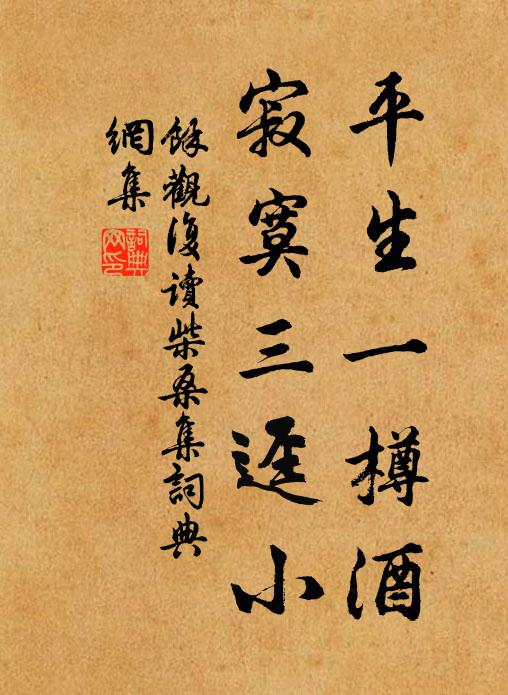 平生一樽酒
寂寞三逕小
餘觀復讀柴桑集詞典
網集
詞典
網印